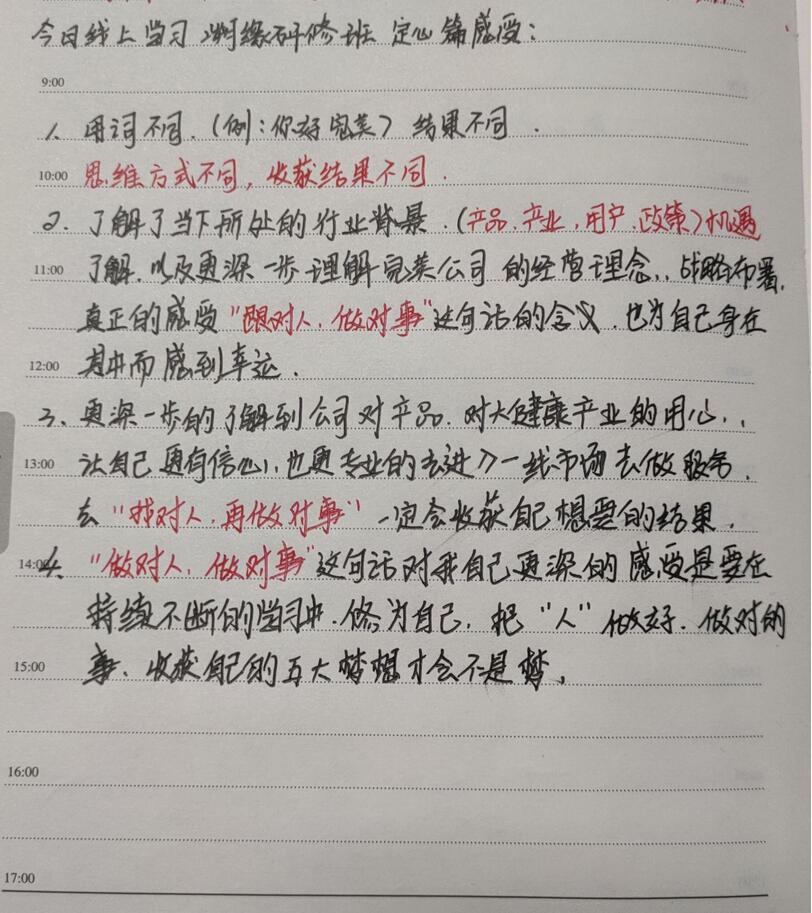 今日线上学习 研修班 定心篇感受：
9:00
1、用词不同.（例：你好完美）结果不同.
10:00 思维方式不同，收获结果不同.
2. 了解了当下所处的行业背景.（产品.产业，用户.政策）机遇
11:00 了解.以及更深一步理解完美公司的经营理念，.战略布署.
真正的感受“跟对人.做对事”这句话的含义.也为自己身在
12:00 其中而感到幸运.
3、更深一步的了解到公司对产品.对大健康产业的用心，.
13:00 让自己更有信心，也更专业的去进入一线市场去做服务.
去“找对人，再做对事”一定会收获自己想要的结果.
14:00 4、“做对人，做对事”这句话对我自己更深的感受是要在
持续不断的学习中.修为自己，把“人”做好.做对的
15:00 事.收获自己的五大梦想才会不是梦.
16:00
17:00